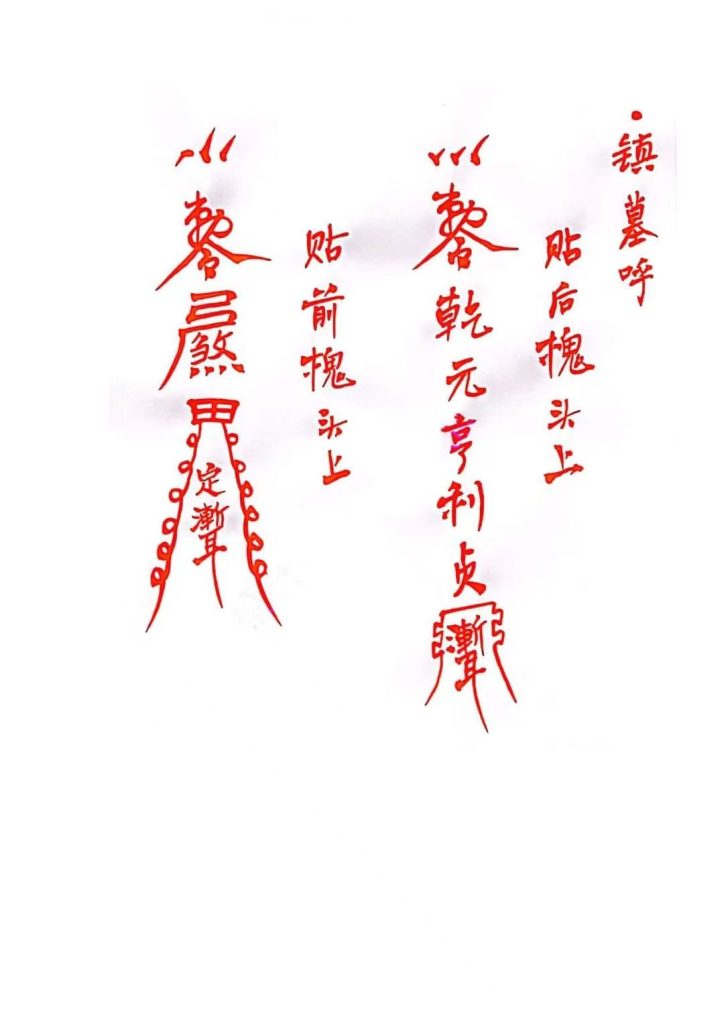 ·镇墓呼
贴后槐头上
敕令乾元亨利贞
贴前槐头上
敕令
煞
田
定